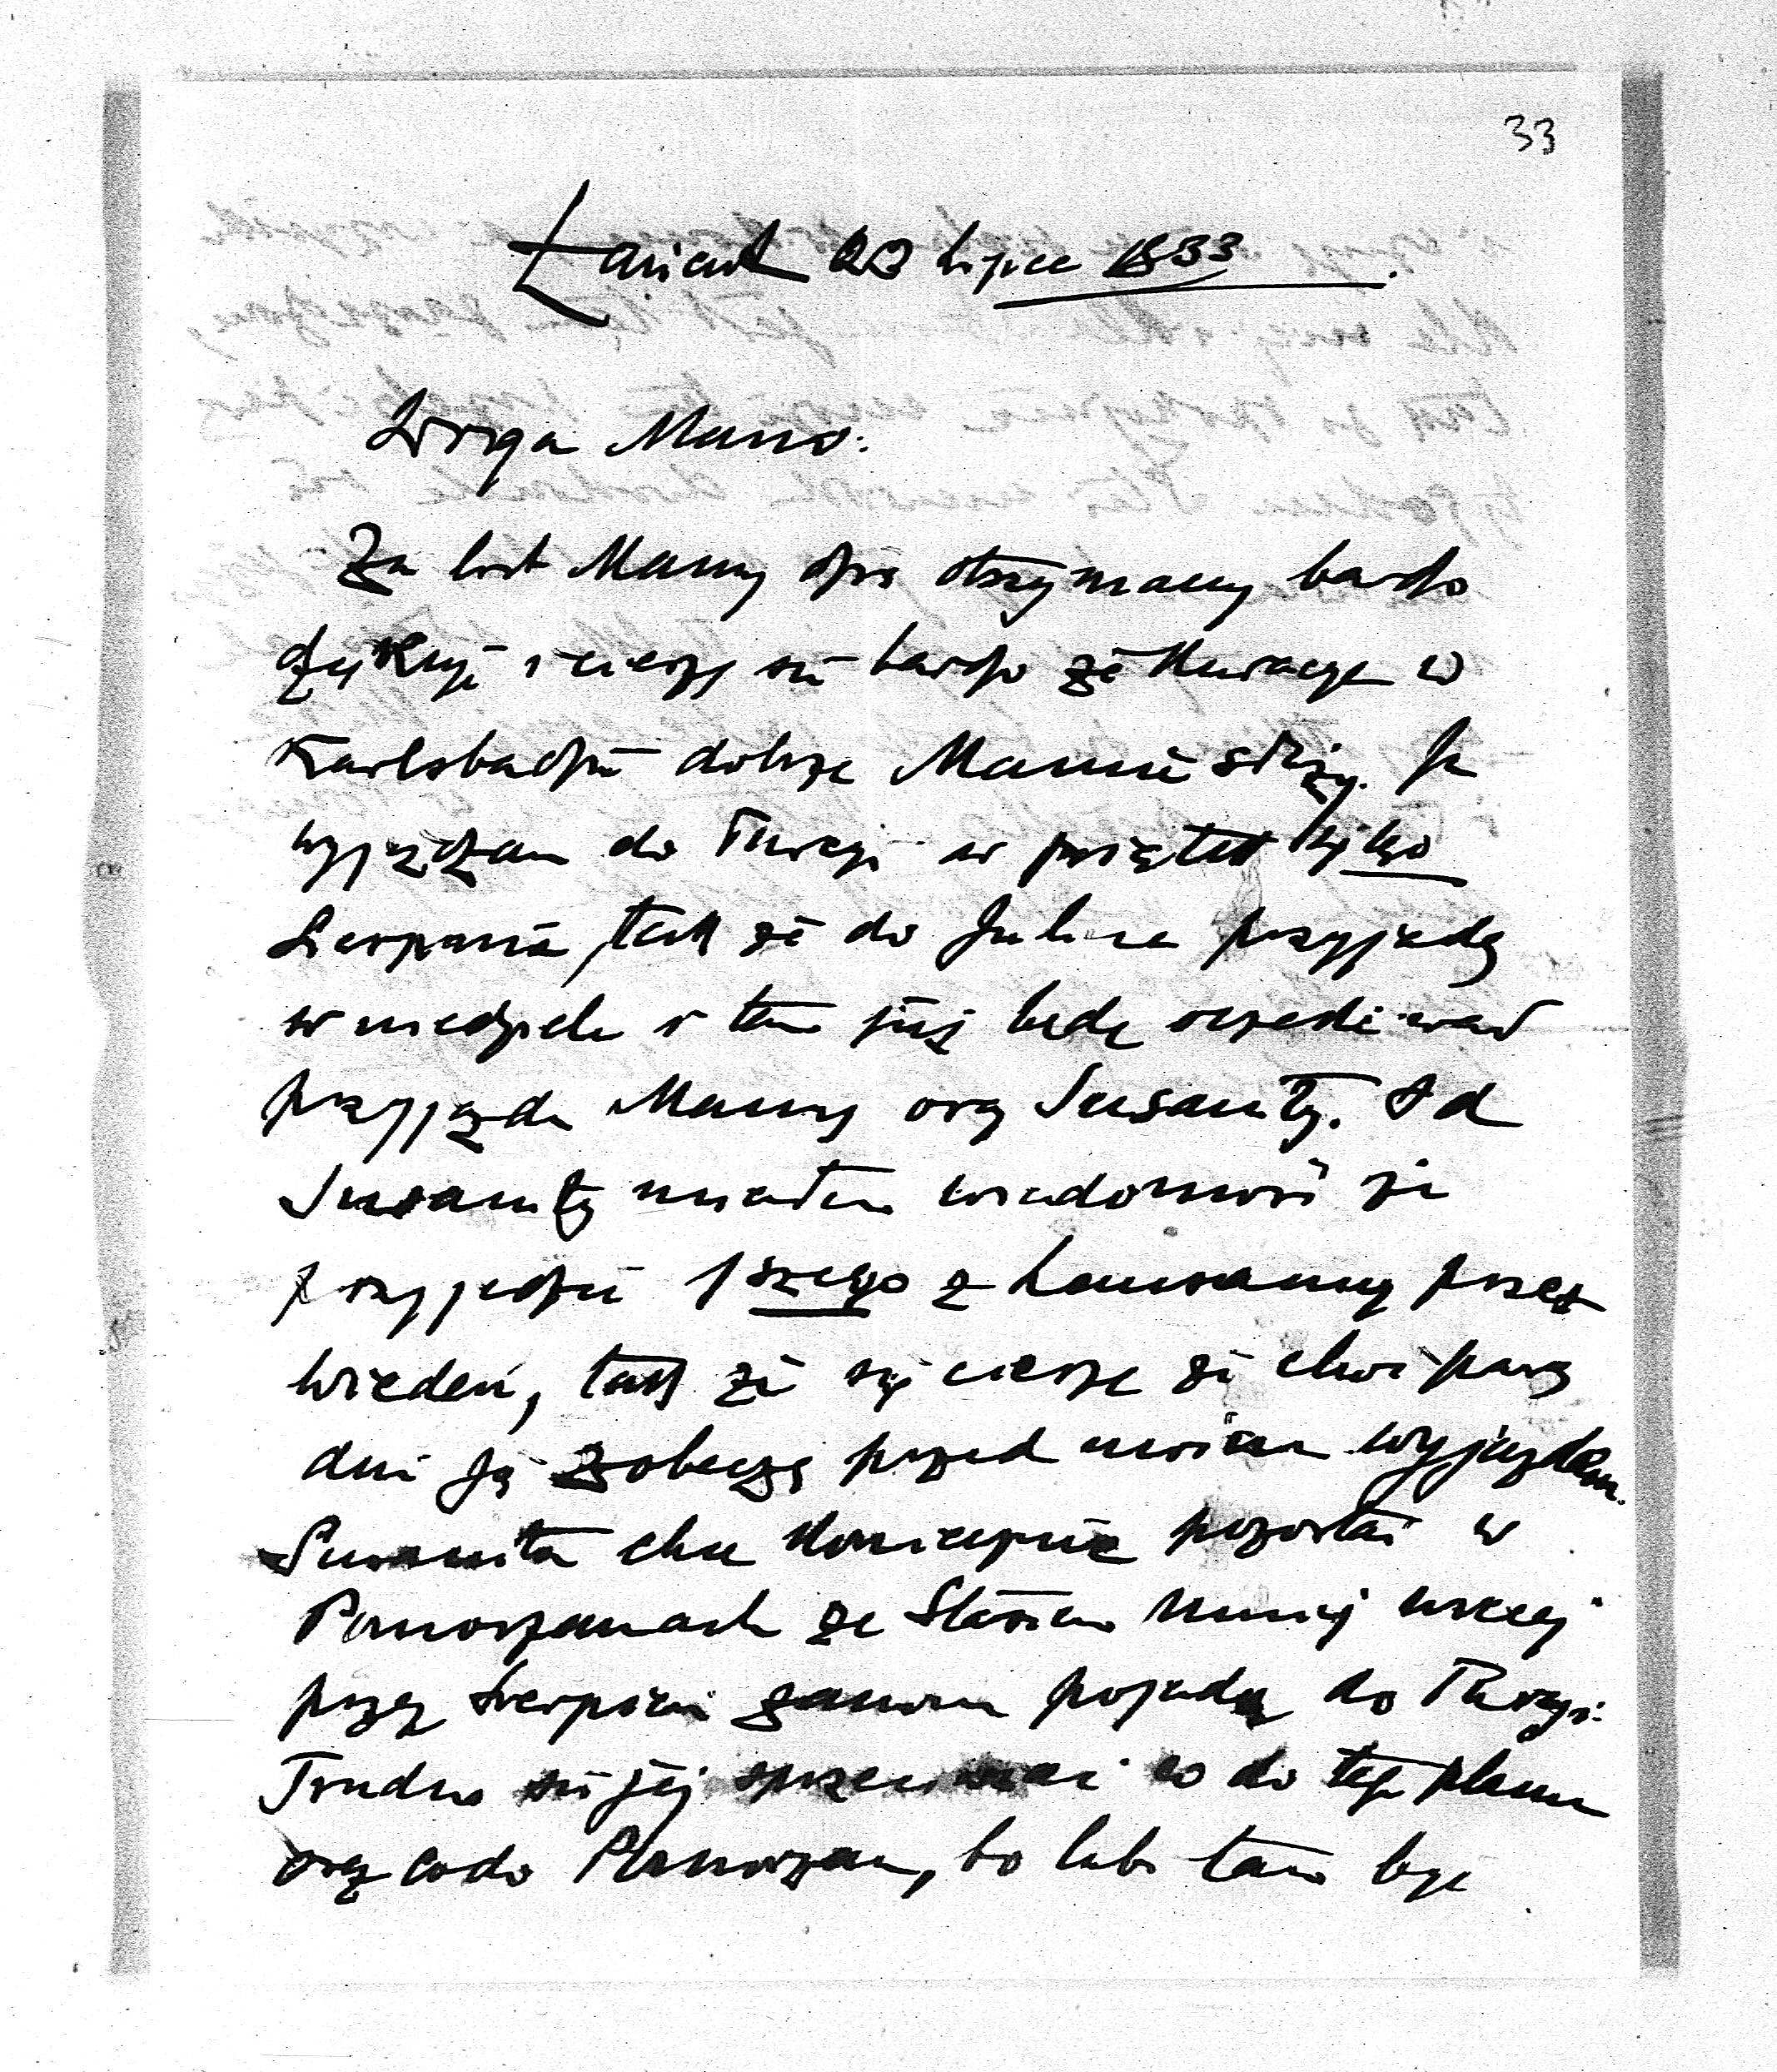 33
Łańcut 23 Lipca 1933.
Droga Mamo.
Za list Mamy dziś otrzymany bardzo
dziękuję i cieszę się bardzo że kuracya w
Karlsbadzie dobrze Mamie służy. Ja
wyjeżdżam do Turcyi w piątek
Sierpnia, tak że do Julina przyjadę
w niedzielę i tam już będę oczekiwał
przyjazdu Mamy oraz Susanity. Od
Susanity miałem wiadomość że
przyjedzie 1szego z Lausanny przez
Wiedeń, tak że się cieszę że choć parę
dni ją zobaczę przed moim wyjazdem.
Susanita chce koniecznie pozostać w
Pomorzanach ze Stasiem mniej więcej
przez Sierpień zanim pojadą do Turcyi.
Trudno się jej sprzeciwiać co do tego planu
oraz co do Pomorzan, bo lubi tam być